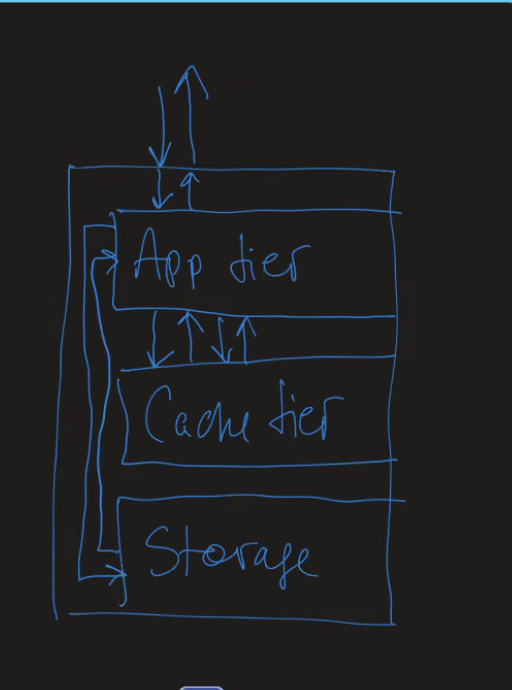 App tier
Cache tier
Storage